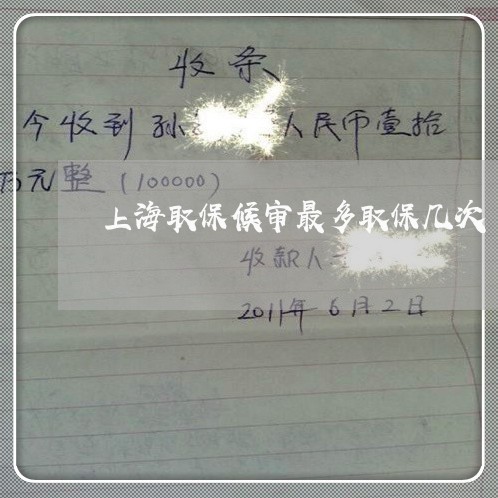 收条
今收到孙 人民币壹拾
万元整(100000)
上海取保候审最多取保几次
收款人:
2011年6月2日